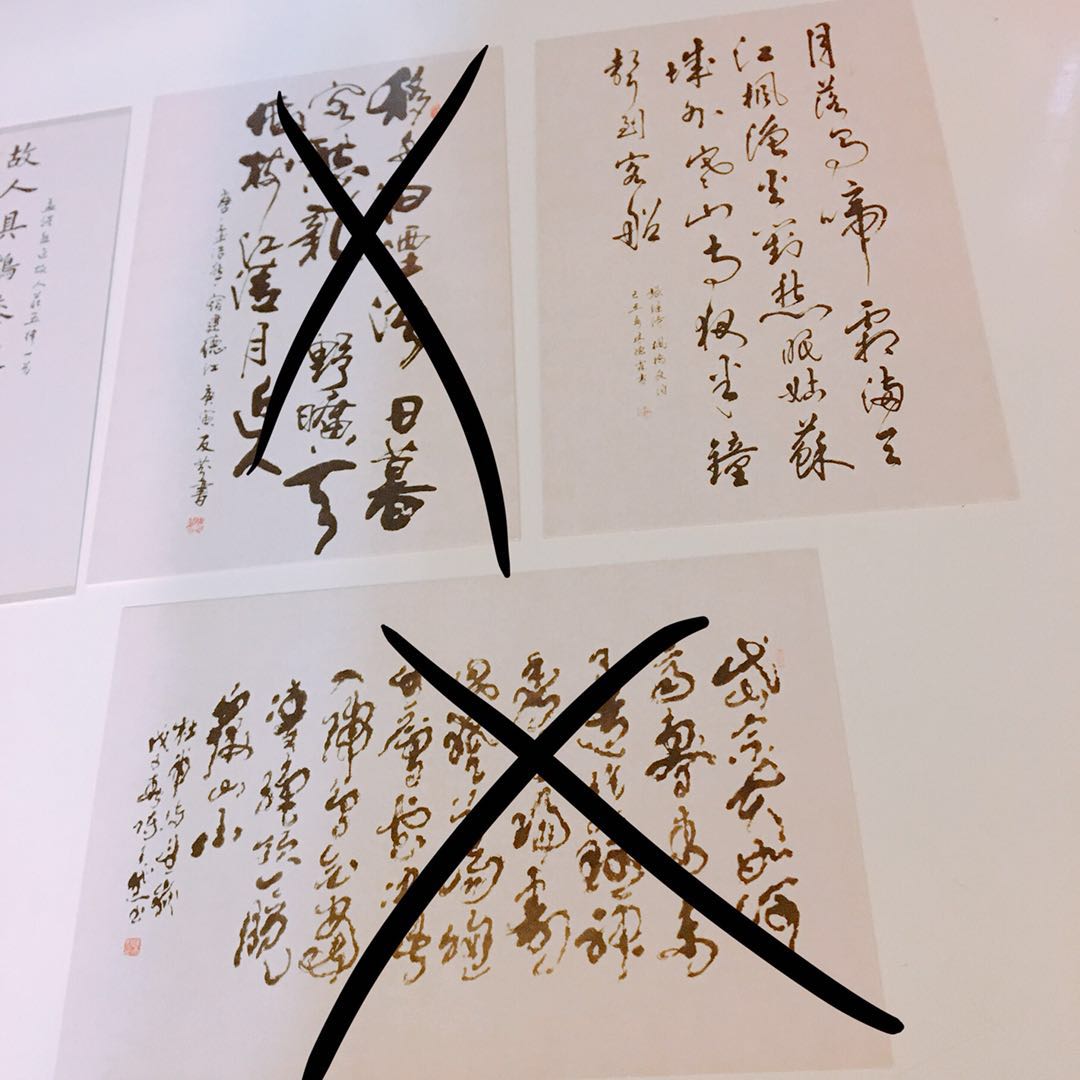 月落烏啼霜滿天
江楓漁火對愁眠姑蘇
城外寒山寺夜半鐘
聲到客船
張繼詩楓橋夜泊
移舟泊煙渚日暮
客愁新野曠天
低樹江清月近人
唐孟浩然宿建德江庚寅友芬書
故人具鷄黍
孟浩然過故人莊五律一首
岱宗夫如何
齊魯青未
了造化鍾神
秀陰陽割
昏曉盪胸
生層雲決眥
入歸鳥會當
凌絕頂一覽
衆山小
杜甫詩望嶽